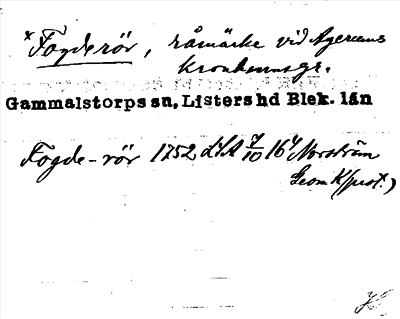 * Fogderör, råmärke vid Agerums
kronhemmgr.
Gammalstorps sn, Listers hd Blek. län
Fogde-rör 1752 LSA 7/10 16 4 Norström
Geom K/just.)